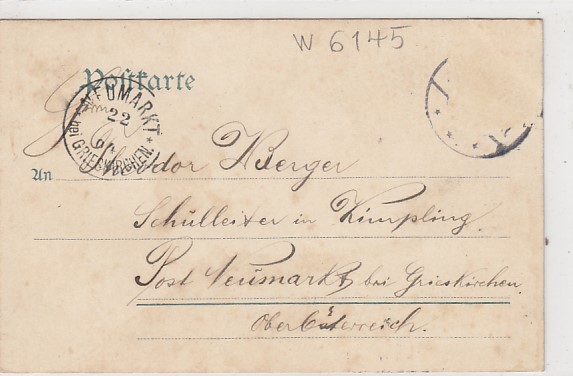 W 6145
Postkarte
NEUMARKT
22
bei GRIESKIRCHEN.
An
H Berger
Schulleiter in Kimpling
Post Neumarkt bei Grieskirchen.
Oberösterreich.